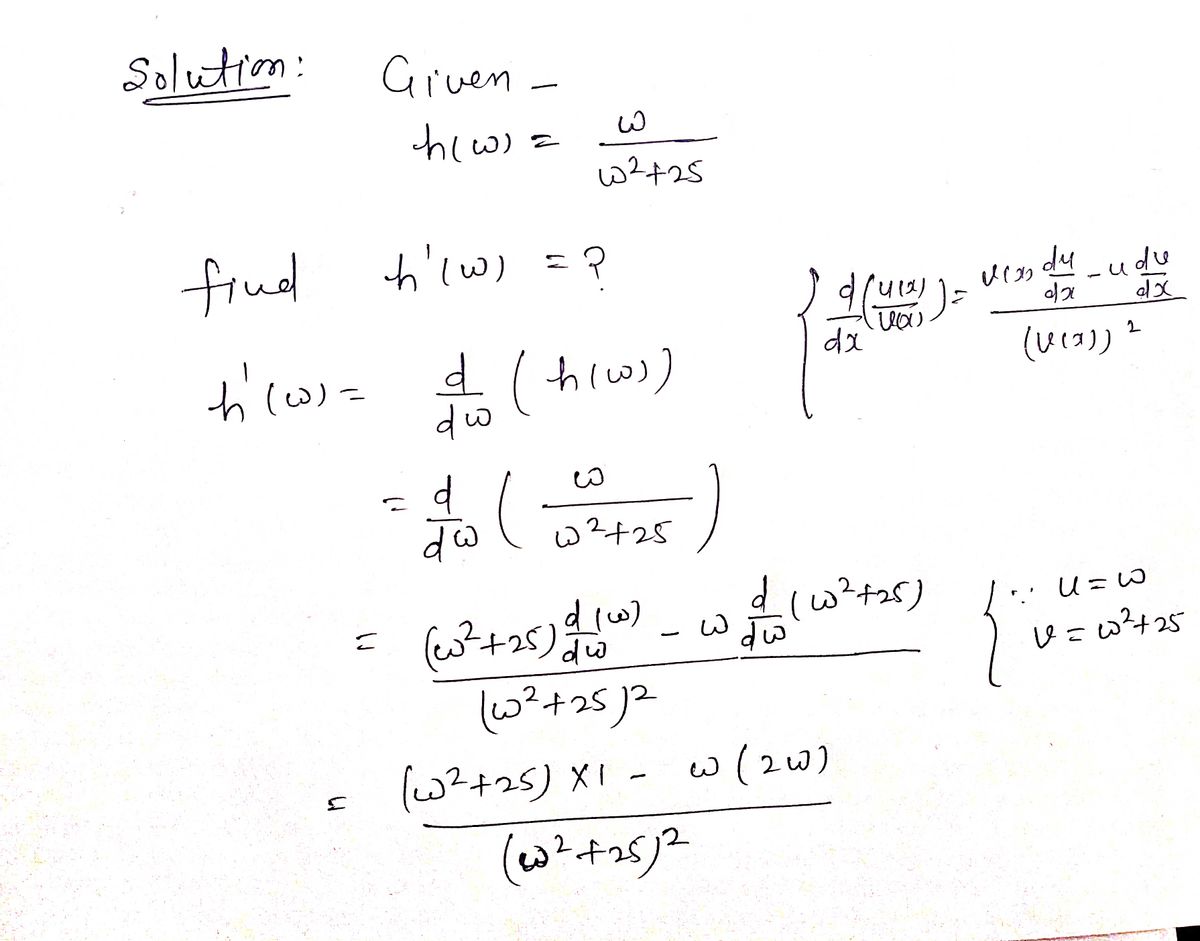 Solution: Given –
h(ω) = ω / ω²+25
find h'(ω) = ?
{ d/dx (u(x)/v(x)) = v(x) du/dx - u dv/dx / (v(x))²
h'(ω) = d/dω (h(ω))
= d/dω ( ω / ω²+25 )
= (ω²+25) d(ω)/dω - ω d/dω (ω²+25) / (ω²+25)²
{ ∵ u = ω
v = ω²+25
= (ω²+25) ×1 - ω(2ω) / (ω²+25)²